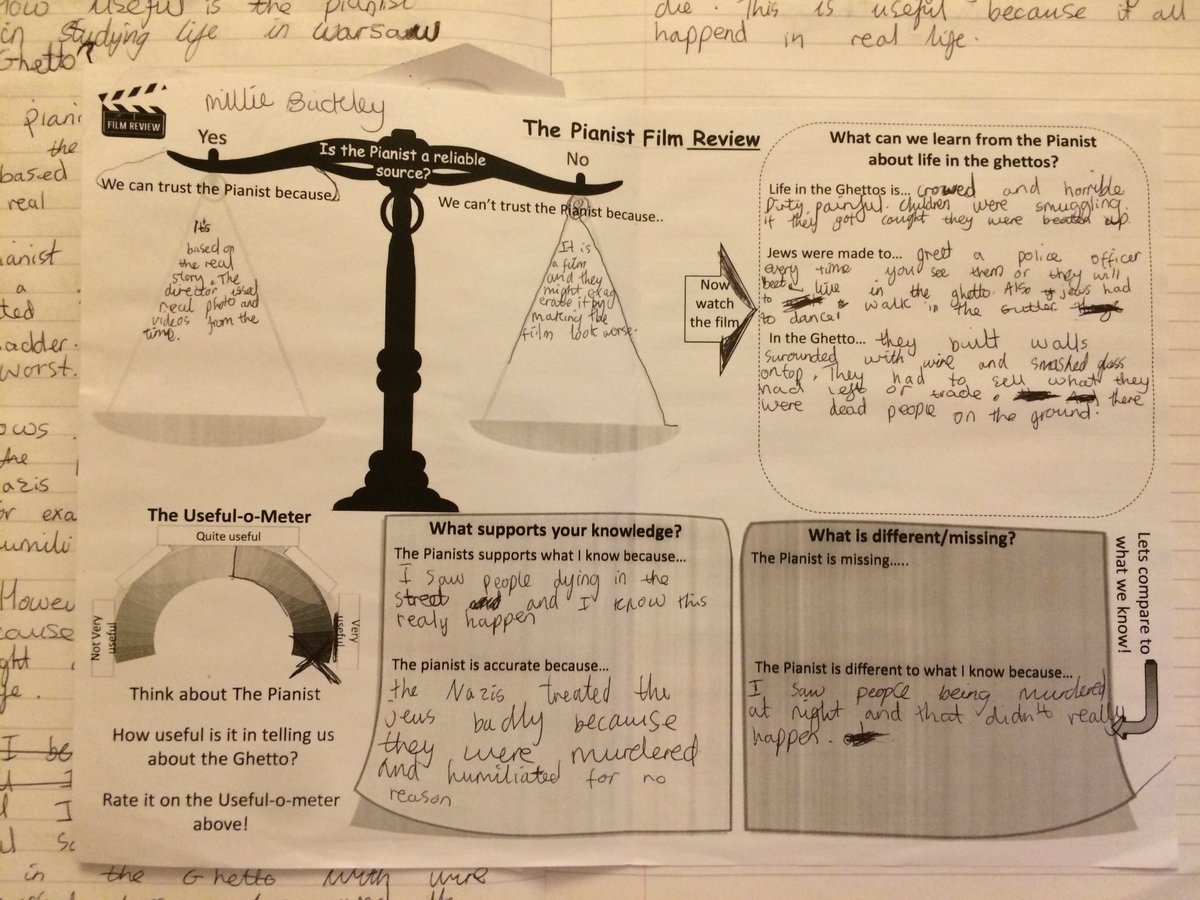 How useful is the pianist
in studying life in warsaw
Ghetto?
die. This is useful because it all
happend in real life.
FILM REVIEW
Millie Buckley
The Pianist Film Review
Yes
Is the Pianist a reliable
source?
No
We can trust the Pianist because
We can't trust the Pianist because..
It's
based on
the real
story. The
director used
real photo and
videos from the
time.
It is
a film
and they
might exag
erate it by
making the
film look worse.
Now
watch
the film
What can we learn from the Pianist
about life in the ghettos?
Life in the Ghettos is... crowed and horrible
Dirty, painful. Children were smuggling.
if they got caught they were beated up.
Jews were made to... greet a police officer
every time you see them or they will
beet live in the ghetto. Also jews had
to walk in the gutter
to dance.
In the Ghetto... they built walls
surounded with wire and smashed glass
ontop. They had to sell what they
had left or trade. there
were dead people on the ground.
The Useful-o-Meter
Quite useful
Not Very
useful
Very
useful
Think about The Pianist
How useful is it in telling us
about the Ghetto?
Rate it on the Useful-o-meter
above!
What supports your knowledge?
The Pianists supports what I know because...
I saw people dying in the
street and I know this
realy happen
The pianist is accurate because...
the Nazis treated the
jeus badly because
they were murdered
and humiliated for no
reason
What is different/missing?
The Pianist is missing.....
The Pianist is different to what I know because...
I saw people being murdered
at night and that didn't really
happen.
Lets compare to
what we know!
piani
the
based
real
ianist
a
ted
sadder.
worst.
ows
the
azis
or exa
humili
Howev
cause
ght
fe.
I be
I
in the Ghetto with wire